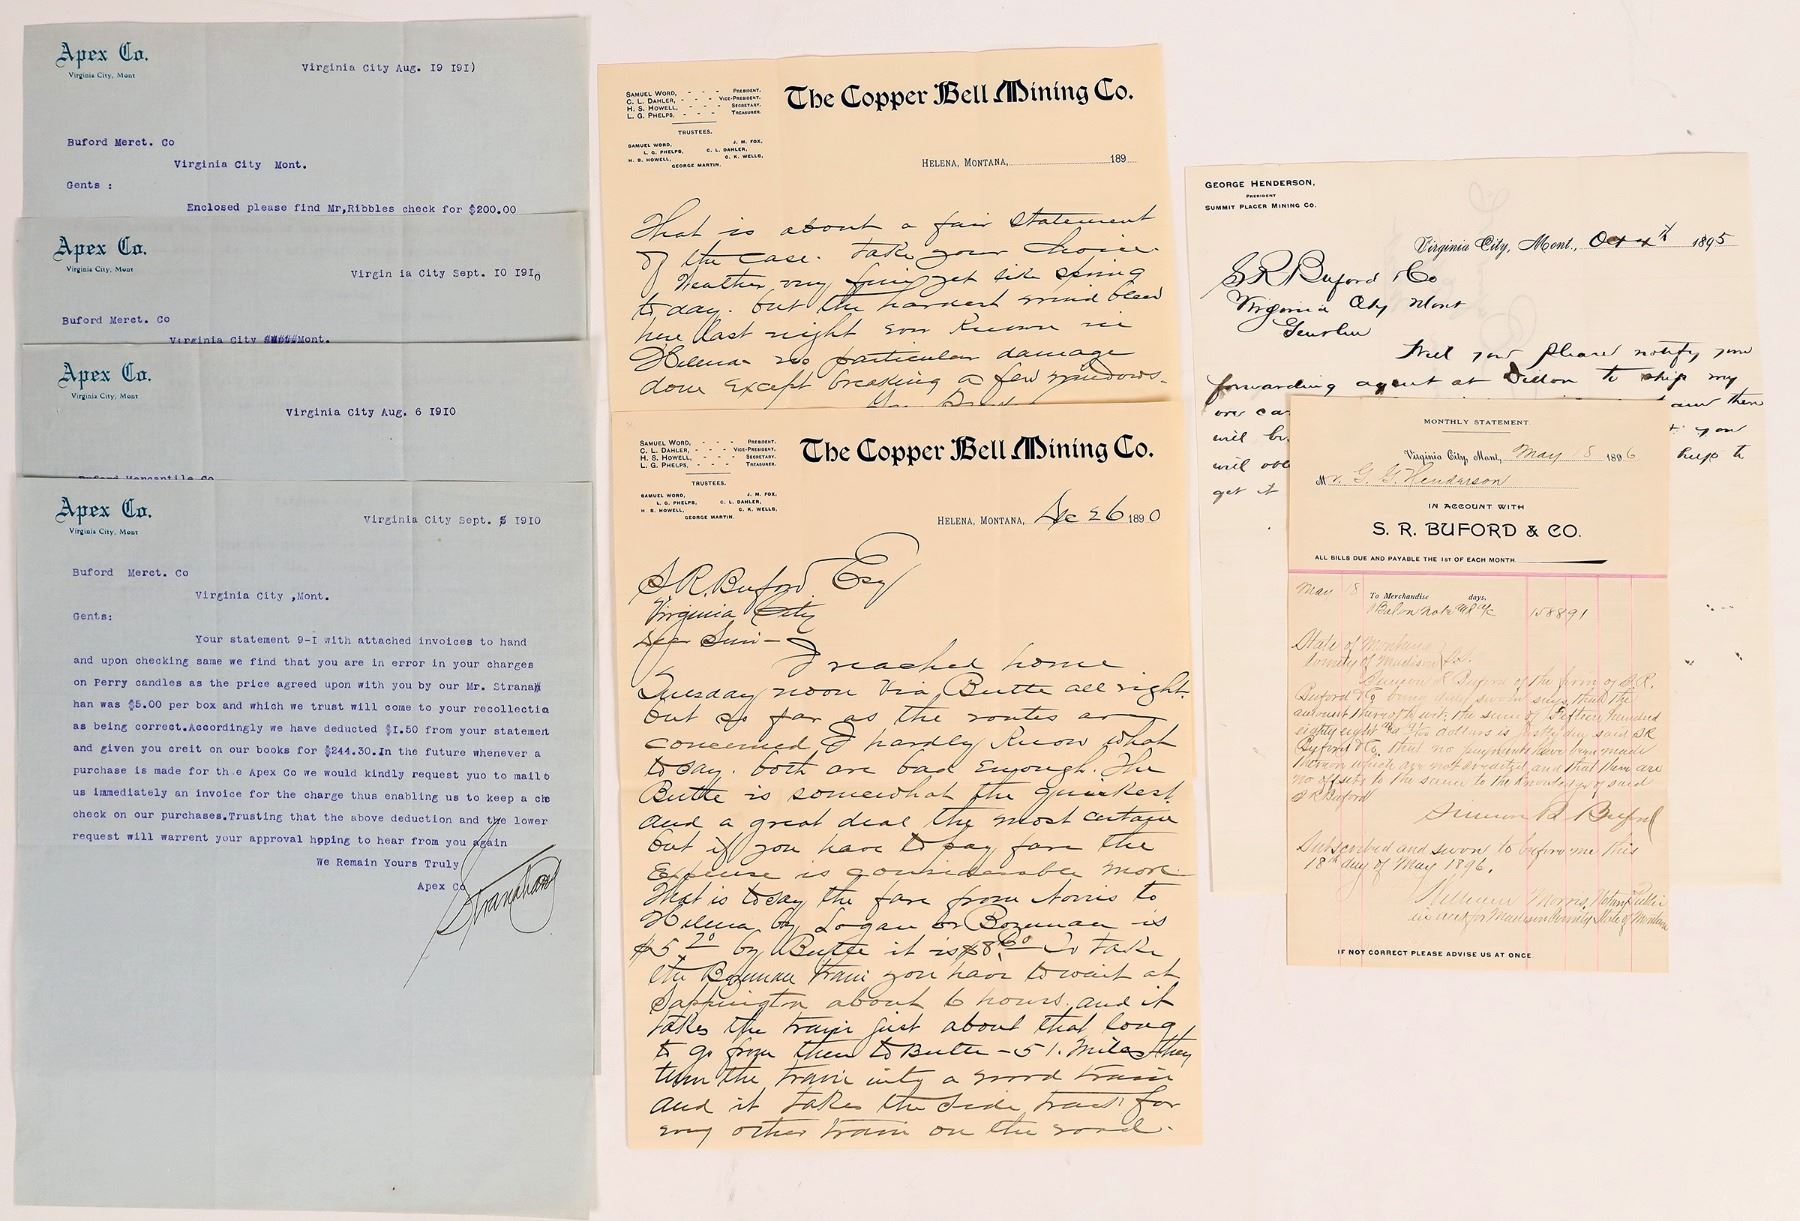 Apex Co.
Virginia City, Mont
Virginia City Aug. I9 I9I)
Buford Merct. Co
Virginia City Mont.
Gents :
Enclosed please find Mr,Ribbles check for $200.00
Apex Co.
Virginia City, Mont
Virgin ia City Sept. I0 I9I0
Buford Merct. Co
Virginia City Mont.
Apex Co.
Virginia City, Mont
Virginia City Aug. 6 I9I0
Buford Mercantile Co
Apex Co.
Virginia City, Mont
Virginia City Sept. 5 I9I0
Buford Merct. Co
Virginia City ,Mont.
Gents:
Your statement 9-I with attached invoices to hand
and upon checking same we find that you are in error in your charges
on Perry candles as the price agreed upon with you by our Mr. Strana
han was $5.00 per box and which we trust will come to your recollectio
as being correct.Accordingly we have deducted $I.50 from your statemen
and given you creit on our books for $244.30.In the future whenever a
purchase is made for th e Apex Co we would kindly request yuo to mail
us immediately an invoice for the charge thus enabling us to keep a
check on our purchases.Trusting that the above deduction and the lower
request will warrent your approval hpping to hear from you again
We Remain Yours Truly
Apex Co
Stranahan
The Copper Bell Mining Co.
SAMUEL WORD, - - - PRESIDENT.
C. L. DAHLER, - - - VICE-PRESIDENT.
H. S. HOWELL, - - - SECRETARY.
L. G. PHELPS, - - - TREASURER.
TRUSTEES.
SAMUEL WORD, J. M. FOX,
L. G. PHELPS, C. L. DAHLER,
H. S. HOWELL, C. K. WELLS,
GEORGE MARTIN.
HELENA, MONTANA, 189
That is about a fair statement
of the case. Take your choice.
Weather very fine yet like spring
to day. but the hardest wind blew
here last night ever known in
Helena no particular damage
done except breaking a few windows.
The Copper Bell Mining Co.
SAMUEL WORD, - - - PRESIDENT.
C. L. DAHLER, - - - VICE-PRESIDENT.
H. S. HOWELL, - - - SECRETARY.
L. G. PHELPS, - - - TREASURER.
TRUSTEES.
SAMUEL WORD, J. M. FOX,
L. G. PHELPS, C. L. DAHLER,
H. S. HOWELL, C. K. WELLS,
GEORGE MARTIN.
HELENA, MONTANA, Dec 26 1890
S. R. Buford Esq
Virginia City
Dear Simi-
I reached home
Tuesday noon via Butte all right.
but as far as the routes are
concerned I hardly know what
to say. both are bad enough. The
Butte is somewhat the quickest
and a great deal the most certain
but if you have to pay fare the
Expense is considerable more
That is to say the fare from Norris to
Helena by Logan or Bozeman is
$5.20 by Butte it is $8.60 To take
the Bozeman train you have to wait at
Sappington about 6 hours. and it
takes the train just about that long
to go from then to Butte - 51. Miles they
turn the train into a mixed train
and it takes the side track for
any other train on the road.
GEORGE HENDERSON,
PRESIDENT
SUMMIT PLACER MINING CO.
Virginia City, Mont., Oct 4th 1895
S R Buford & Co
Virginia City Mont
Gentlen
Will you please notify your
forwarding agent at Dillon to ship my
ore ca
and then
will b
you
will ob
help to
get it
MONTHLY STATEMENT
Virginia City, Mont, May 18 1896
Mr. G. G. Henderson
IN ACCOUNT WITH
S. R. BUFORD & CO.
ALL BILLS DUE AND PAYABLE THE 1ST OF EACH MONTH.
May 18 To Merchandise days,
Bal on note 1588 91
State of Montana
County of Madison S.S.
Simeon R Buford of the firm of S. R.
Buford & Co being duly sworn says that the
amount thereof to wit the sum of Fifteen hundred
eighty eight 91/100 dollars is justly due said SR
Buford & Co. that no payments have been made
thereon which are not credited and that there are
no offsets to the same to the knowledge of said
S R Buford
Simeon R Buford
Subscribed and sworn to before me this
18th day of May 1896.
William Morris, Notary Public
in and for Madison County State of Montana
IF NOT CORRECT PLEASE ADVISE US AT ONCE